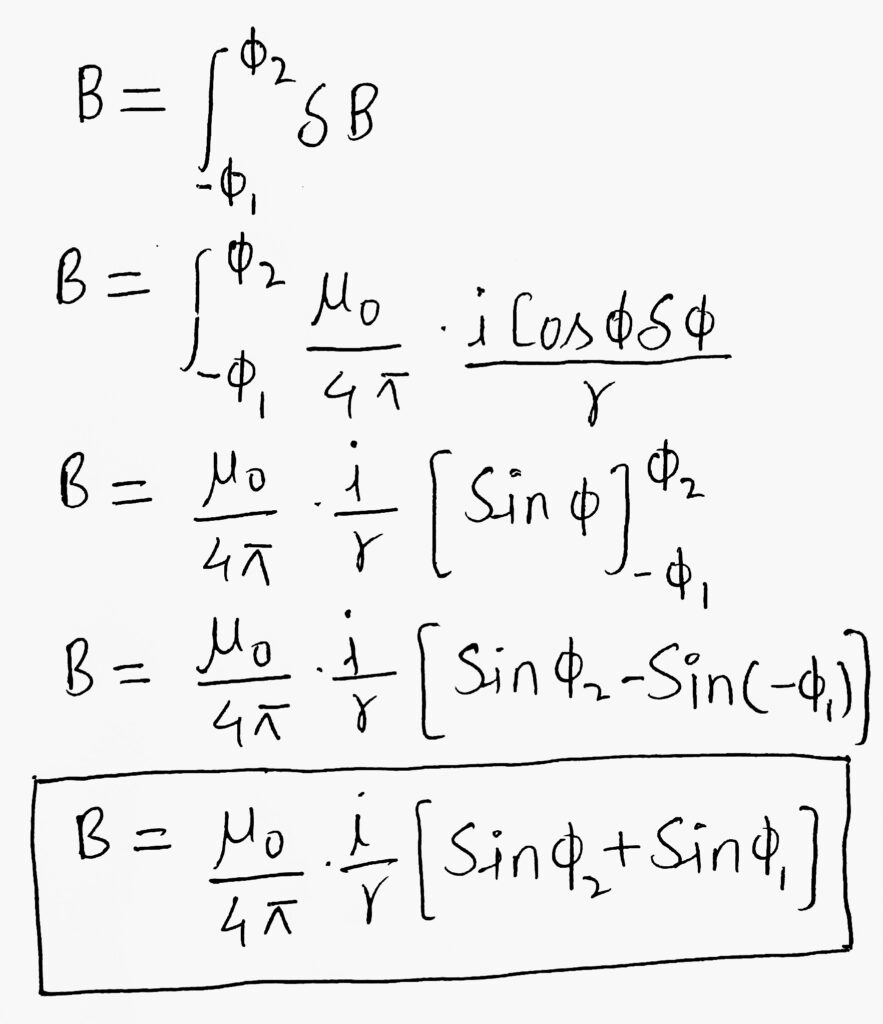 B = ∫_{-ϕ₁}^{ϕ₂} δB
B = ∫_{-ϕ₁}^{ϕ₂} μ₀/4π · i Cos ϕ δϕ/r
B = μ₀/4π · i/r [Sin ϕ]_{-ϕ₁}^{ϕ₂}
B = μ₀/4π · i/r [Sin ϕ₂ - Sin(-ϕ₁)]
B = μ₀/4π · i/r [Sin ϕ₂ + Sin ϕ₁]